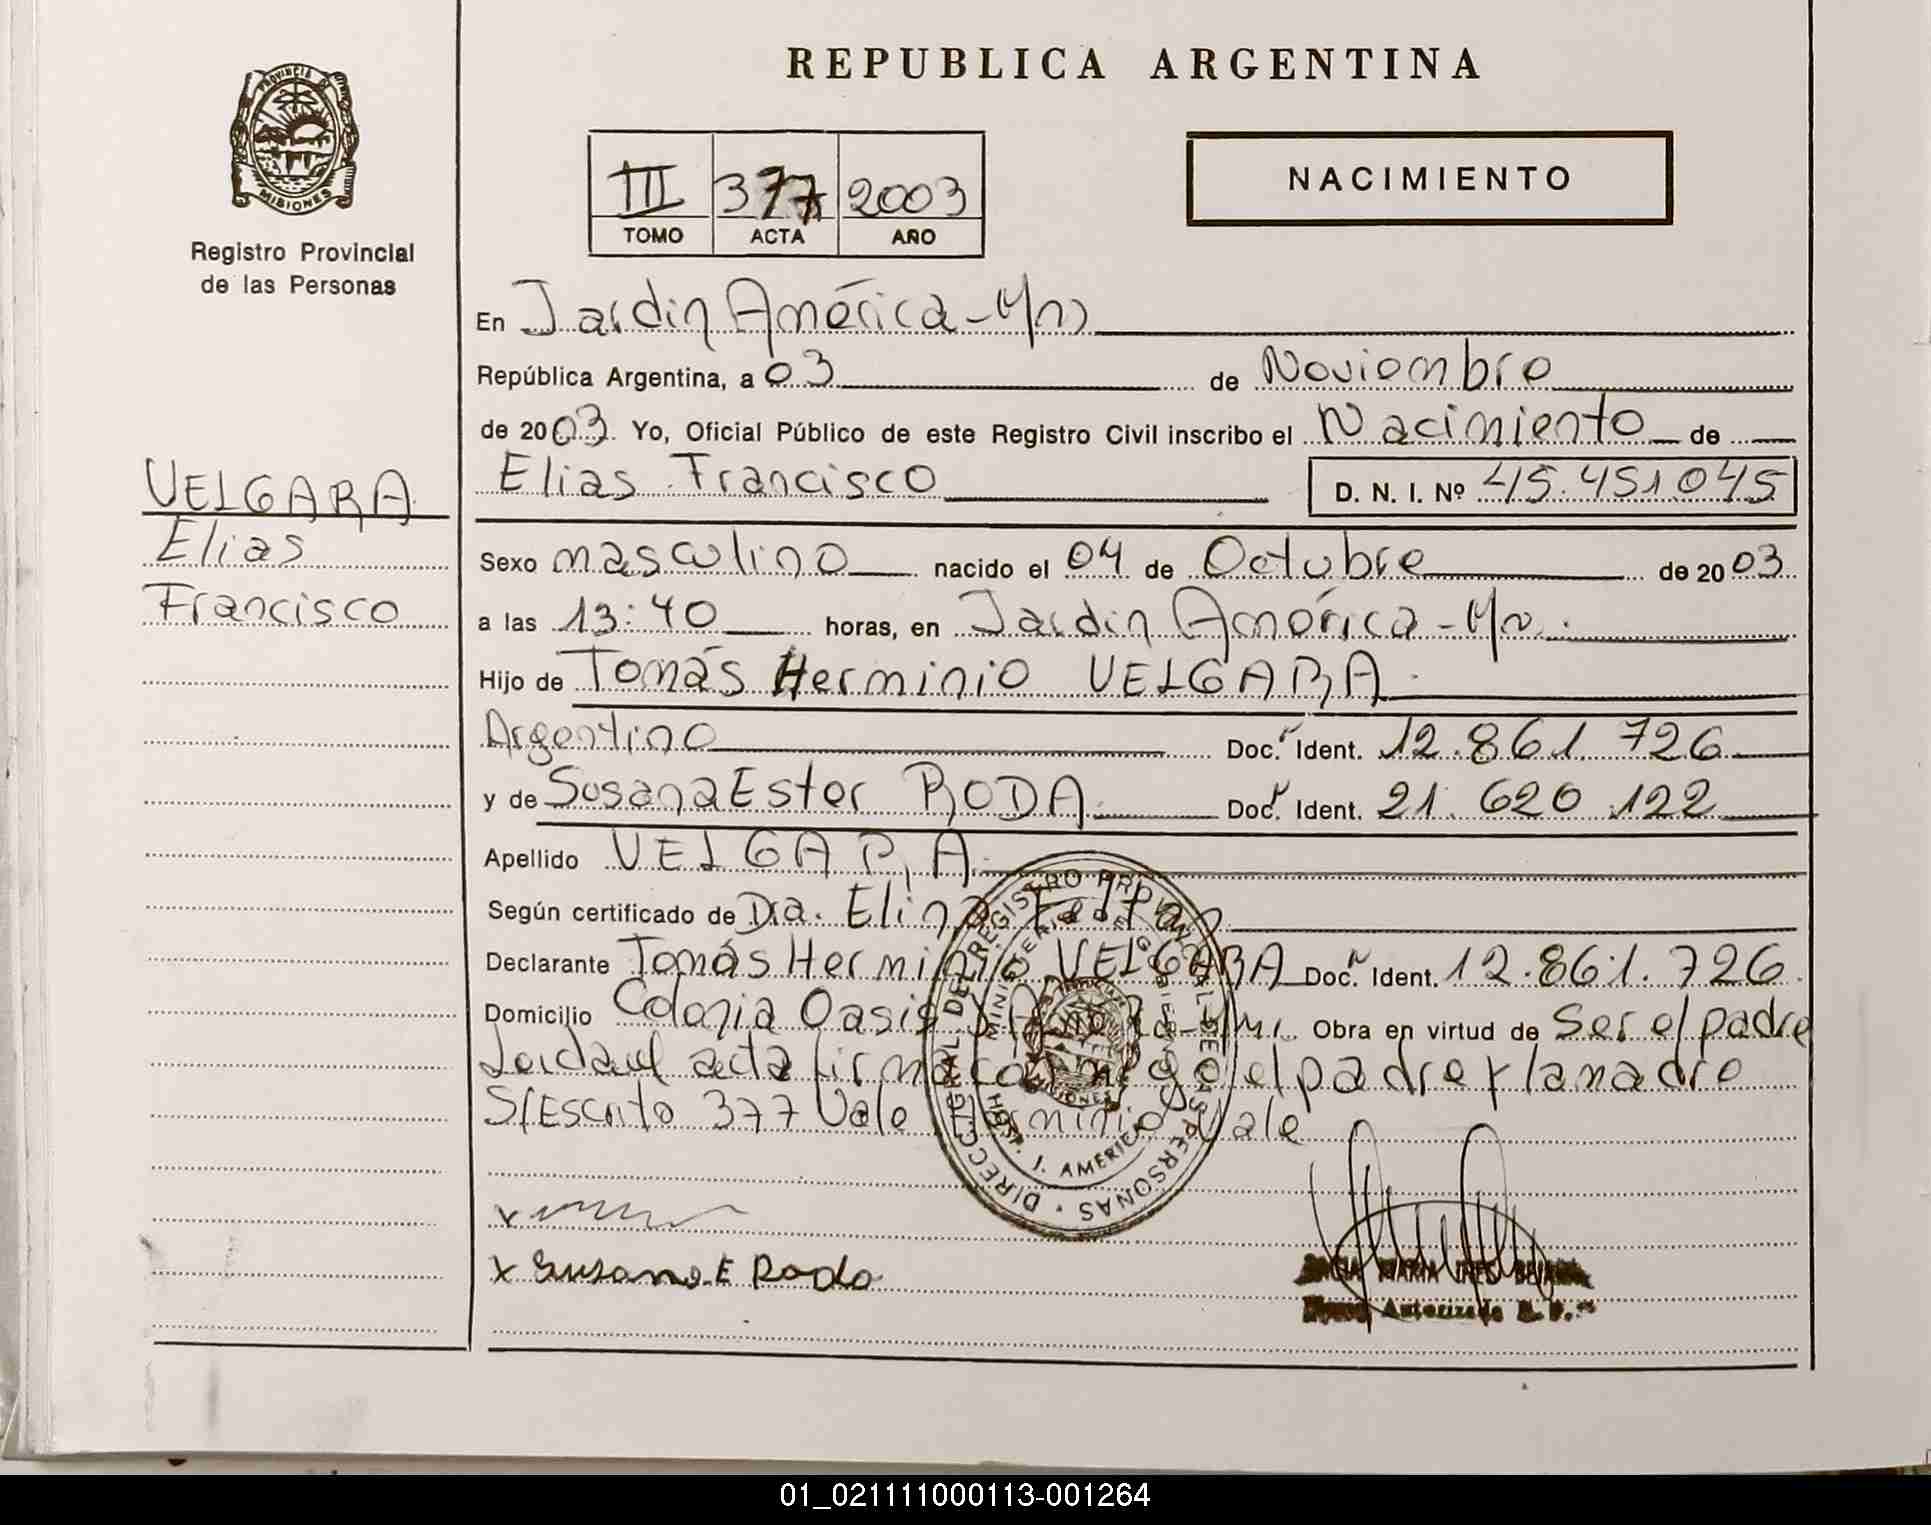 REPUBLICA ARGENTINA
PROVINCIA DE
MISIONES
Registro Provincial
de las Personas
III 377 2003
TOMO ACTA AÑO
NACIMIENTO
En Jardin América - Mn
República Argentina, a 03 de Noviembre
de 2003. Yo, Oficial Público de este Registro Civil inscribo el Nacimiento de
Elias Francisco D. N. I. Nº 45.451.045
VELGARA
Elias
Francisco
Sexo masculino nacido el 04 de Octubre de 2003
a las 13:40 horas, en Jardin América - Mn.
Hijo de Tomás Herminio VELGARA
Argentino Doc. Ident. 12.861.726
y de Susana Ester RODA Doc. Ident. 21.620.122
Apellido VELGARA
Según certificado de Dra. Elina
Declarante Tomás Herminio VELGARA Doc. Ident. 12.861.726
Domicilio Colonia Oasis Obra en virtud de Ser el padre
Leida el acta firma conmigo el padre y la madre
S/Escrito 377 Vale Herminio Vale
DIRECCION GRAL DEL REGISTRO PROVINCIAL DE LAS PERSONAS
MINISTERIO DE GOBIERNO
HOSP. J. AMERICA
x Susana E Roda
MARIA INES
Autorizada
01_021111000113-001264